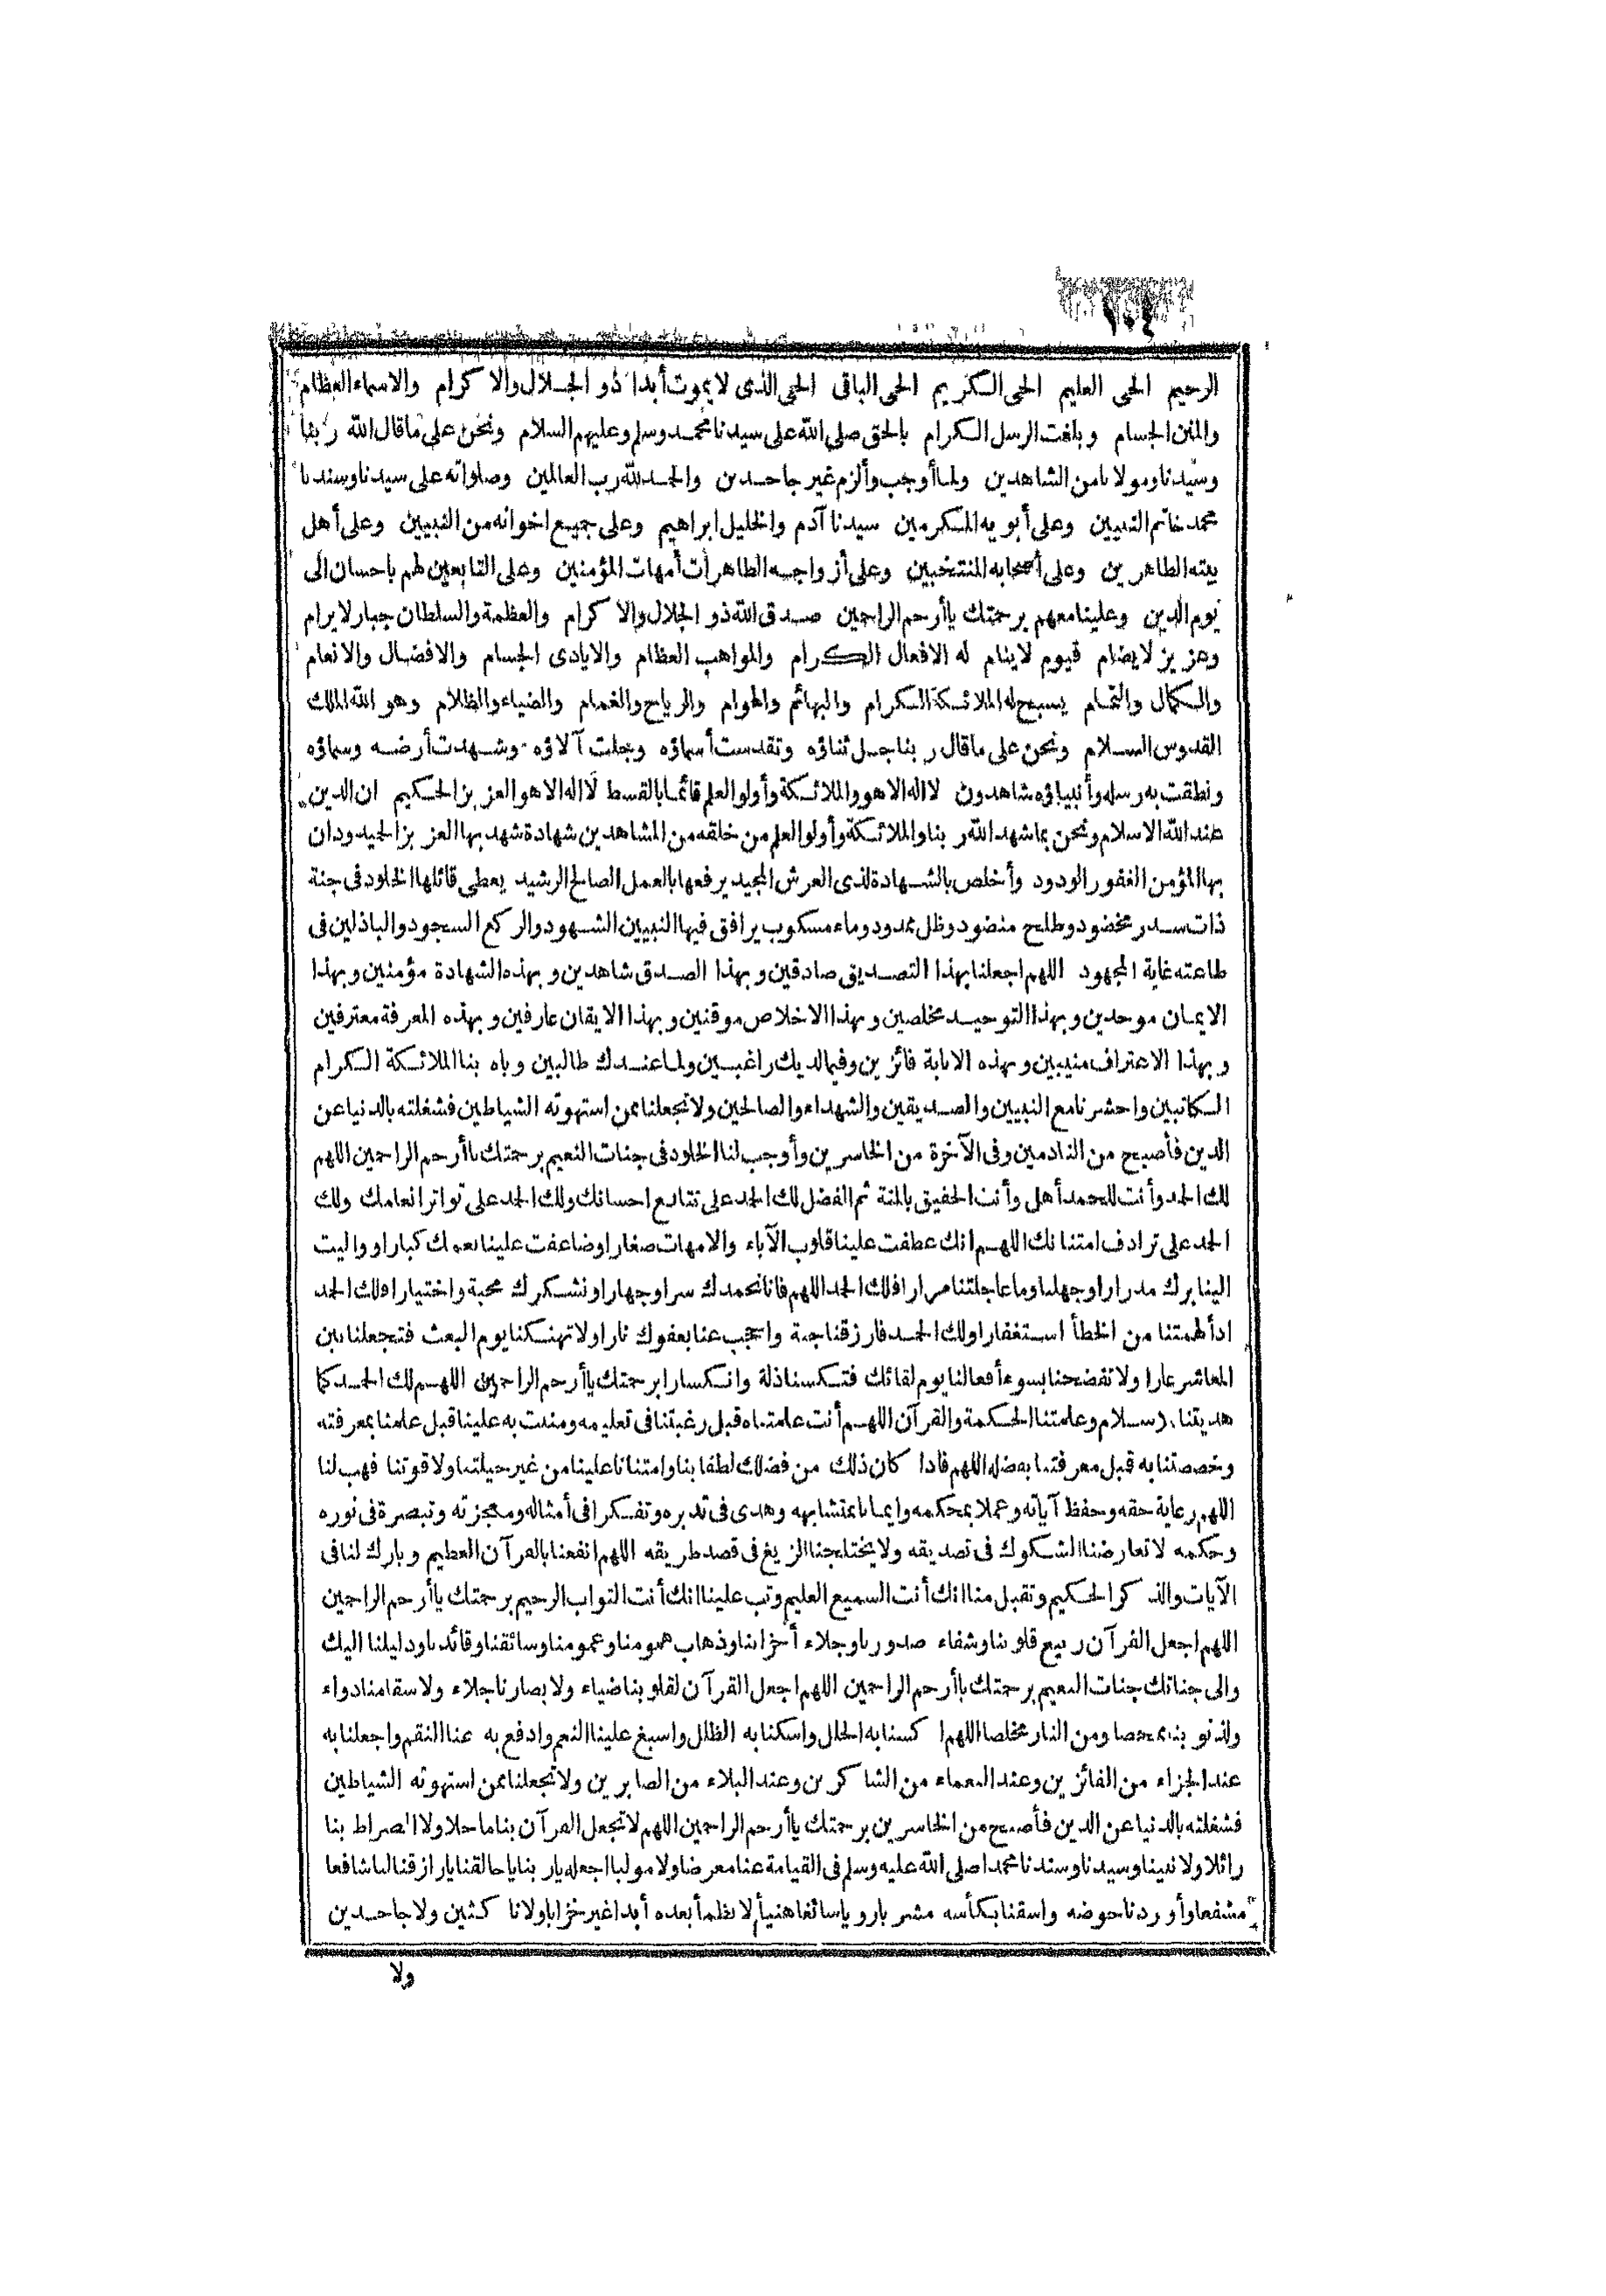 ١٠٤
الرحيم الحى العليم الحى الكريم الحى الباقى الحى الذى لا يموت أبدا ذو الجلال والاكرام والاسماء العظام
والمنن الجسام وبلغت الرسل الكرام بالحق صلى الله على سيدنا محمد وسلم وعليهم السلام ونحن على ما قال الله ربنا
وسيدنا ومولانا من الشاهدين ولما أوجب وألزم غير جاحدين والحمد لله رب العالمين وصلواته على سيدنا وسندنا
محمد خاتم النبيين وعلى أبويه المكرمين سيدنا آدم والخليل ابراهيم وعلى جميع اخوانه من النبيين وعلى أهل
بيته الطاهرين وعلى أصحابه المنتخبين وعلى أزواجه الطاهرات أمهات المؤمنين وعلى التابعين لهم باحسان الى
يوم الدين وعلينا معهم برحمتك يا أرحم الراحمين صدق الله ذو الجلال والاكرام والعظمة والسلطان جبار لا يرام
وعزيز لا يضام قيوم لا ينام له الافعال الكرام والمواهب العظام والايادى الجسام والافضال والانعام
والكمال والتمام يسبح له الملائكة الكرام والبهائم والهوام والرياح والغمام والضياء والظلام وهو الله الملك
القدوس السلام ونحن على ما قال ربنا جل ثناؤه وتقدست أسماؤه وجلت آلاؤه وشهدت أرضه وسماؤه
ونطقت به رسله وأنبياؤه شاهدون لا اله الا هو والملائكة وأولوا العلم قائما بالقسط لا اله الا هو العزيز الحكيم ان الدين
عند الله الاسلام ونحن بما شهد الله ربنا والملائكة وأولوا العلم من خلقه من الشاهدين شهادة شهد بها العزيز الحميد ودان
بها المؤمن الغفور الودود وأخلص بالشهادة لذى العرش المجيد يرفعها بالعمل الصالح الرشيد يعطى قائلها الخلود فى جنة
ذات سدر مخضود وطلح منضود وظل ممدود وماء مسكوب يرافق فيها النبيين الشهود والركع السجود والباذلين فى
طاعته غاية المجهود اللهم اجعلنا بهذا التصديق صادقين وبهذا الصدق شاهدين وبهذه الشهادة مؤمنين وبهذا
الايمان موحدين وبهذا التوحيد مخلصين وبهذا الاخلاص موقنين وبهذا الايقان عارفين وبهذه المعرفة معترفين
وبهذا الاعتراف منيبين وبهذه الانابة فائزين وفيما لديك راغبين ولما عندك طالبين وباه بنا الملائكة الكرام
الكاتبين واحشرنا مع النبيين والصديقين والشهداء والصالحين ولا تجعلنا ممن استهوته الشياطين فشغلته بالدنيا عن
الدين فأصبح من النادمين وفى الآخرة من الخاسرين وأوجب لنا الخلود فى جنات النعيم برحمتك يا أرحم الراحمين اللهم
لك الحمد وأنت للحمد أهل وأنت الحقيق بالمنة ثم الفضل لك الحمد على تتابع احسانك ولك الحمد على تواتر انعامك ولك
الحمد على ترادف امتنانك اللهم انك عطفت علينا قلوب الآباء والامهات صغارا وضاعفت علينا نعمك كبارا وواليت
الينا برك مدرارا وجهلنا وما عاجلتنا مرارا فلك الحمد اللهم فانا نحمدك سرا وجهارا ونشكرك محبة واختيارا فلك الحمد
اذ ألهمتنا من الخطأ استغفارا ولك الحمد فارزقنا جنة واحجب عنا بعفوك نارا ولا تهتكنا يوم البعث فتجعلنا بين
المعاشر عارا ولا تفضحنا بسوء أفعالنا يوم لقائك فتكسنا ذلة وانكسارا برحمتك يا أرحم الراحمين اللهم لك الحمد كما
هديتنا للاسلام وعلمتنا الحكمة والقرآن اللهم أنت علمتناه قبل رغبتنا فى تعليمه ومننت به علينا قبل علمنا بمعرفته
وخصصتنا به قبل معرفتنا بفضله اللهم فاذا كان ذلك من فضلك لطفا بنا وامتنانا علينا من غير حيلتنا ولا قوتنا فهب لنا
اللهم رعاية حقه وحفظ آياته وعملا بمحكمه وايمانا بمتشابهه وهدى فى تدبره وتفكرا فى أمثاله ومعجزته وتبصرة فى نوره
وحكمه لا تعارضنا الشكوك فى تصديقه ولا يختلجنا الزيغ فى قصد طريقه اللهم انفعنا بالقرآن العظيم وبارك لنا فى
الآيات والذكر الحكيم وتقبل منا انك أنت السميع العليم وتب علينا انك أنت التواب الرحيم برحمتك يا أرحم الراحمين
اللهم اجعل القرآن ربيع قلوبنا وشفاء صدورنا وجلاء أحزاننا وذهاب همومنا وغمومنا وسائقنا وقائدنا ودليلنا اليك
والى جناتك جنات النعيم برحمتك يا أرحم الراحمين اللهم اجعل القرآن لقلوبنا ضياء ولابصارنا جلاء ولاسقامنا دواء
ولذنوبنا ممحصا ومن النار مخلصا اللهم اكسنا به الحلل واسكنا به الظلل واسبغ علينا النعم وادفع به عنا النقم واجعلنا به
عند الجزاء من الفائزين وعند النعماء من الشاكرين وعند البلاء من الصابرين ولا تجعلنا ممن استهوته الشياطين
فشغلته بالدنيا عن الدين فأصبح من الخاسرين برحمتك يا أرحم الراحمين اللهم لا تجعل القرآن بنا ماحلا ولا الصراط بنا
زائلا ولا نبينا وسيدنا وسندنا محمدا صلى الله عليه وسلم فى القيامة عنا معرضا ولا موليا اجعله يا ربنا يا خالقنا يا رازقنا لنا شافعا
مشفعا وأوردنا حوضه واسقنا بكأسه مشربا رويا سائغا هنيأ لا نظمأ بعده أبدا غير خزايا ولا ناكثين ولا جاحدين
ولا